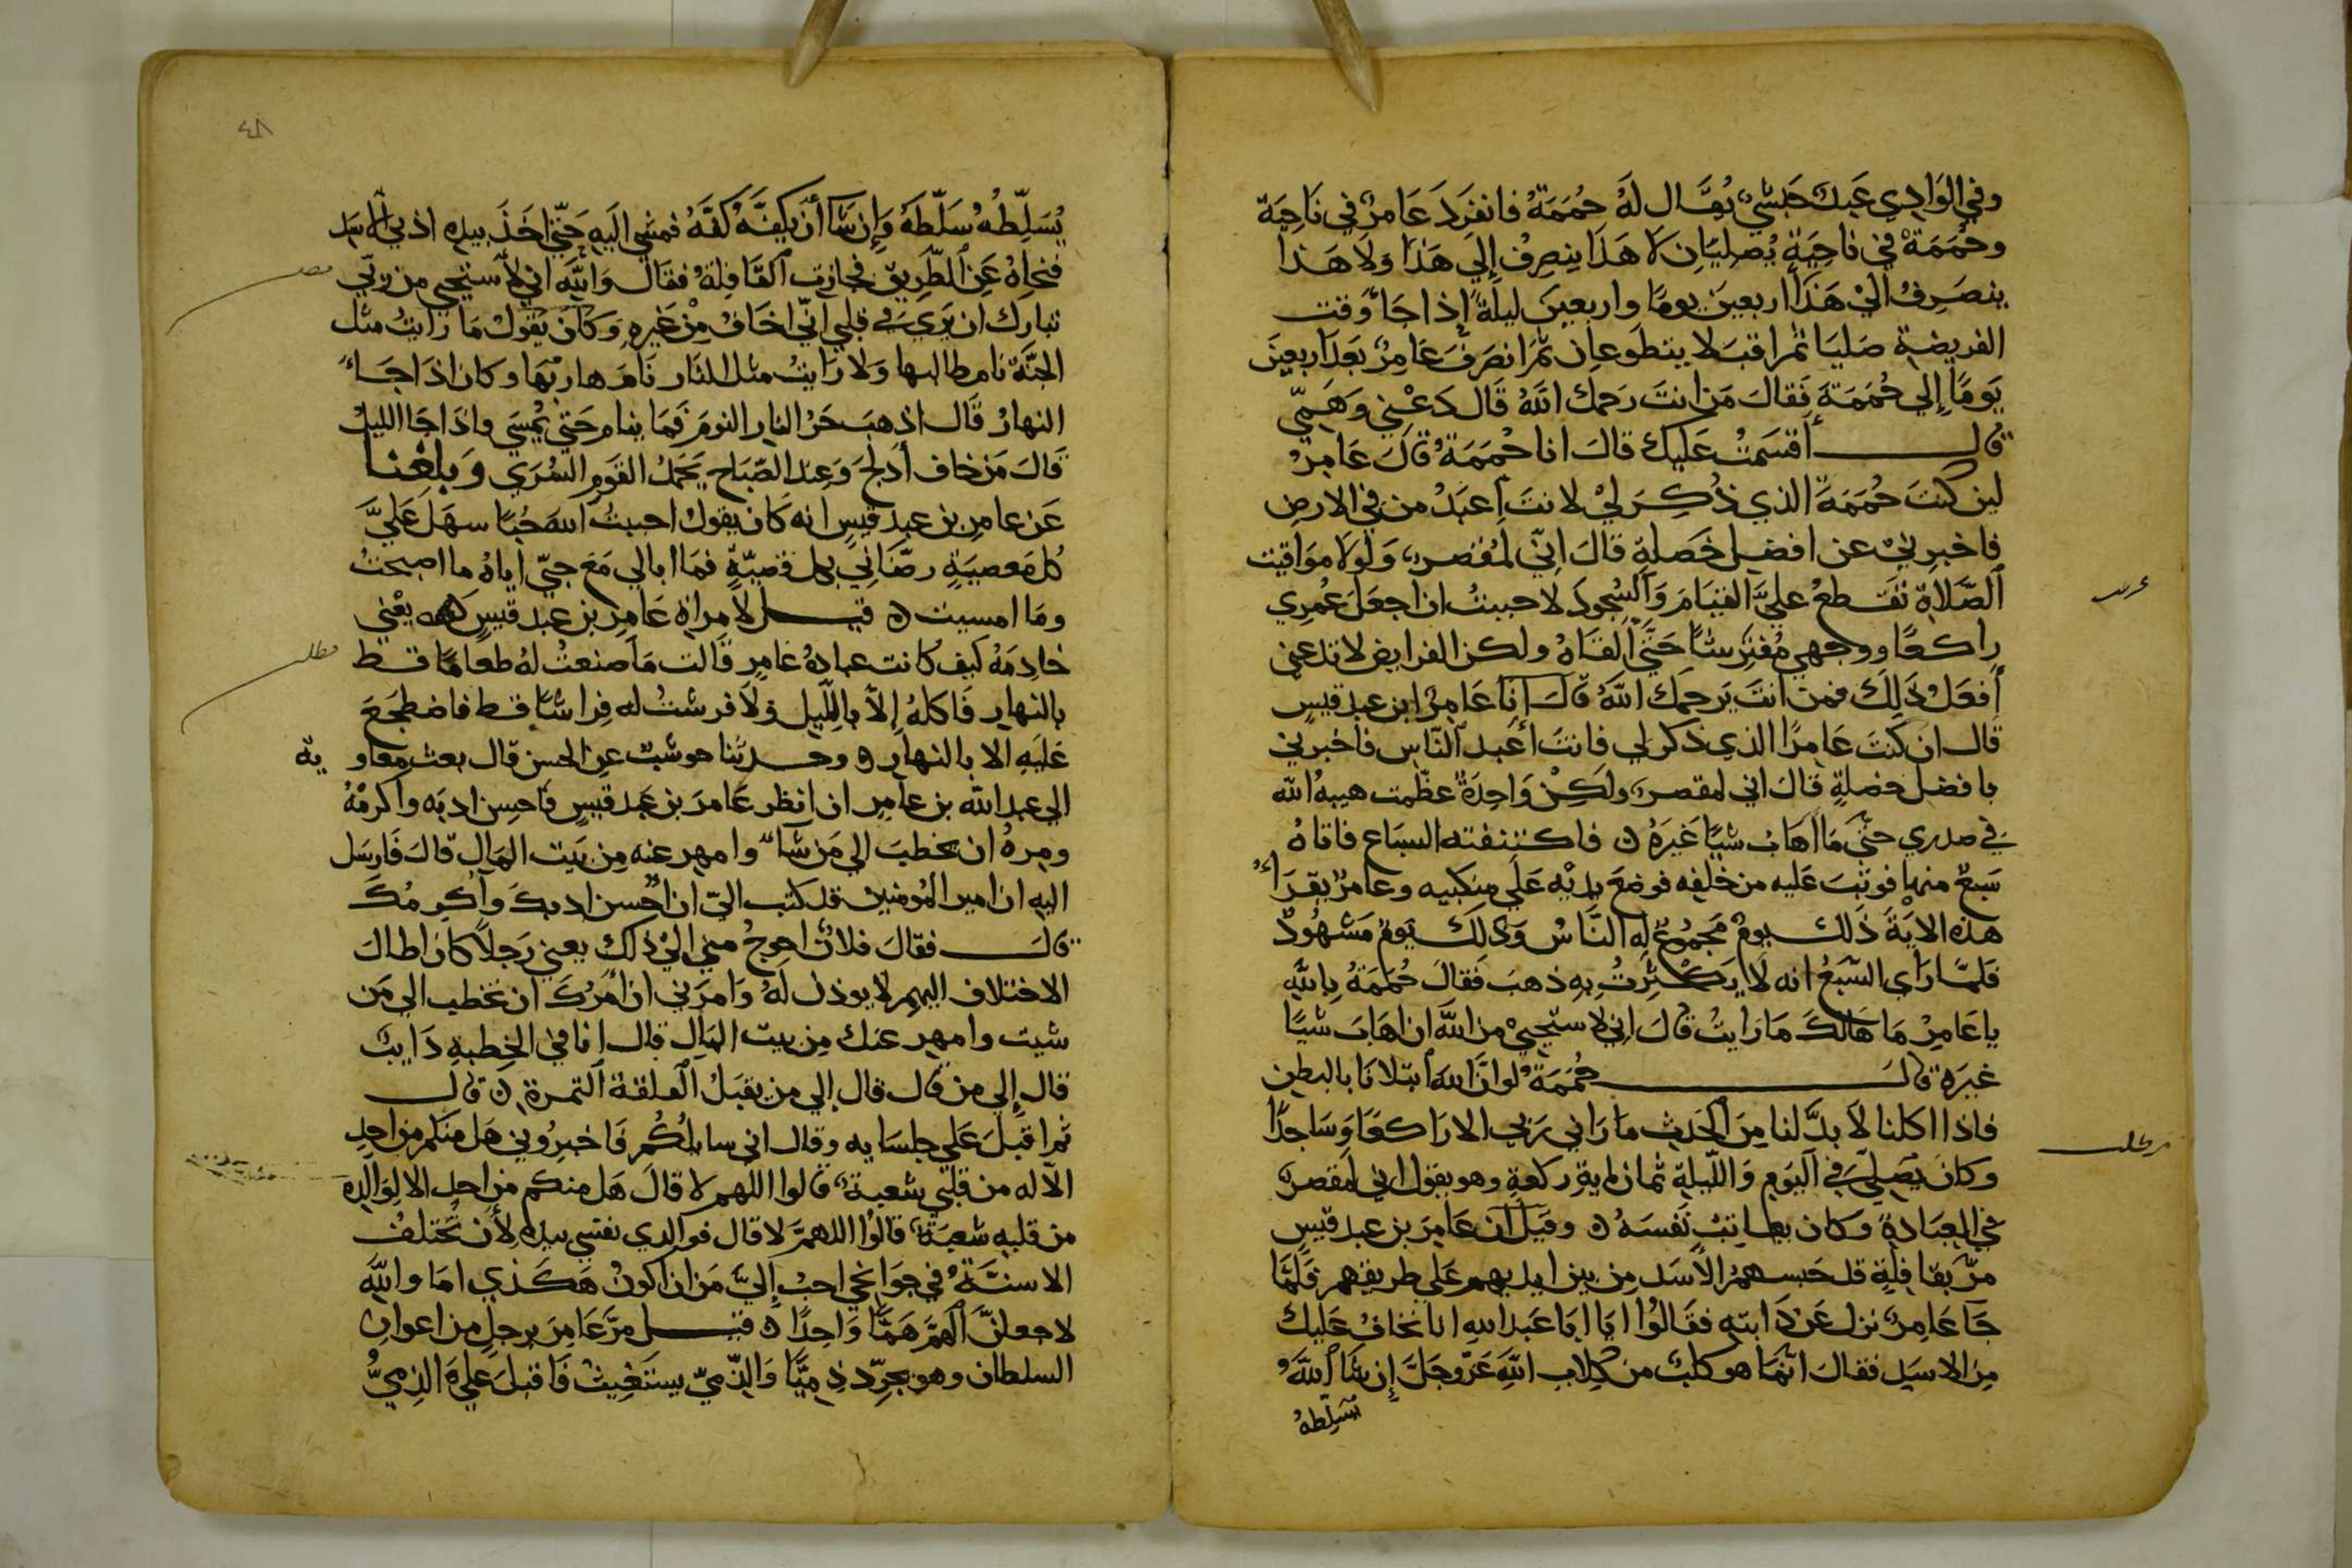 وفي الوَادِي عَبدٌ حَبشيٌ يُقَال لَهُ حُمَمَةُ فانفرَدَ عَامِرٌ في نَاحِيَة
وحُمَمَةُ في ناحِيَةٍ يُصلِيَانِ لَا هَذَا ينصرِفُ إلي هَذَا وَلَا هَذا
ينصَرِفُ اليْ هَذَا اربعينَ يومًا واربعينَ ليلةً إذا جَاءَ وَقت
الفريضة صَليَا ثم اقبَلا يتطَوعانِ ثمّ انصَرَفَ عَامِرٌ بَعدَ اربعينَ
يَومًا إلي حُمَمَةَ فَقالَ مَن انتَ رَحمك اللهُ قَال دَعْنِي وَهَمِّي
قال أقسَمتُ عَليك قالَ انا حُمَمَةُ قَالَ عَامِرٌ
لين كنتَ حُمَمَةَ الذي ذُكِرَ ليْ لانتَ أعبَدُ من في الارضِ
فاخبرنيْ عن افضلِ خَصَلةٍ قالَ انِّي لمُقصرٌ وَلَولَا موَاقيت
الصَّلَاةِ تَقَطعُ عليَّ القيَامَ وَالسُّجودَ لاحببتُ ان اجعَلَ عُمرِي
راكعًا ووجهي مُفترشًا حَتَّي القَاهُ ولكن الفرايض لا تدعني
أفعَلُ ذَلِكَ فمن انتَ يَرحمك اللهُ قَالَ انَا عَامِرٌ ابن عبد قيسٍ
قال ان كنتَ عَامِرًا الذي ذكر لي فانتَ أعبد النّاسِ فاخبرني
بافضل خصلةٍ قالَ اني لمقصرٌ ولَكِنْ وَاحِدَةٌ عظّمت هيبة الله
في صدري حتّي مَا اهَابُ شيًا غَيرَهُ ه فاكتنفته السبَاع فاتاهُ
سَبعٌ منها فوثبَ عَليه من خلفه فوضعَ يديْه عَلي منكبيه وعامرٌ يقرَأُ
هذه الايَةَ ذَلك يومٌ مجمُوعٌ لهُ النَّاسُ وَذلكَ يَومٌ مَشهُودٌ
فلمّا رَاي السَّبعُ انه لَا يَكترِثُ بِهِ ذهبَ فَقالَ حُمَمَةُ بِاللهِ
ياعَامِرُ مَا هَالَكَ مَا رَايتُ قالَ إني لاستحييْ من اللهِ ان اهَابَ شيًا
غيرَهُ قالَ حُمَمَةُ لوانَّ اللهَ ابتلانَا بالبطن
فاذا اكلنا لَا بدَّ لنا مِنَ الحَدثِ مَا رَاني رَبي الا رَاكعًا وَسَاجدًا
وكانَ يُصليَ في اليَومِ وَاللّيلةِ ثمان ماية ركعةٍ وهو يقول اني لمقصرٌ
في العبَادةِ وكان يعاتبُ نَفسَهُ ه وقيلَ ان عَامرَ بن عبد قيسٍ
مرَّ بقافلةٍ قد حَبسهمُ الأسَد مِن بين ايديهم عَلي طريقهم فَلَمَّا
جَا عَامِرٌ نزل عَن دَابتهِ فقَالُوا ايَا ابَا عَبد الله انا نخافُ عَليك
مِن الاسَدِ فقال انَّما هو كلبٌ من كِلابِ اللهِ عَزَّوجَلَّ إن شَا اللهُ
يُسَلِّطهُ
عرب
مطلب
٤٨
يُسَلِّطهُ سَلّطَهُ وَإن شَا أن يَكُفَّهُ كَفَّهُ فمشي اليَه حَتّي اخَذَ بيدهِ اذني الاسَد
فنحاهُ عَنِ الطّرِيق فجازت القَافِلةُ فقالَ وَاللهِ اني لاستحيي من ربّي
تبارك ان يَرَي في قلبي انّي اخَافُ مِنْ غَيرهِ وَكانَ يَقولُ مَا رَايتُ مثل
الجنَّة نام طالبها وَلا رَايتُ مثل النَّار نَامَ هاربُهَا وكان اذَا جَاءَ
النهارُ قَال اذهبَ حَرُّ النار النومَ فَمَا ينام حَتي يُمْسيَ واذَا جَا الليلُ
قَالَ مَن خاف أدلجَ وَعِند الصّبَاح يَحمَدُ القَوم السُّرَي وَبلغنا
عَن عامِر بن عبد قيسٍ انه كَان يقولُ احببتُ اللهَ حُبًا سهَلَ عَليَّ
كُلَّ مَعصيَةٍ رضّانِي بكل قضيّةٍ فمَا ابالي مَعَ حبّي اياهُ ما اصبحتُ
ومَا امسيت ه قيل لامراةِ عَامِر بن عبد قيسٍ يعْني
خادِمَهُ كيفَ كانت عبادةُ عَامرٍ قَالت مَا صنعتُ لهُ طعامًا قط
بالنهارِ فَاكلهُ إلّا بالليل وَلَا فرشتُ له فِراشًا قط فاضطجَعَ
عَليَهِ الا بالنهارِ ه وحدثنا حوشبٌ عن الحسن قال بعث معاوية
الي عبد الله بن عامرِ ان انظر عَامرَ بن عَبد قيسٍ فَاحسِن ادبَه واكرمْهُ
ومرهُ ان يخطبَ الي مَن شاءَ وامهر عنه مِن بَيت المَال قالَ فارسَل
اليهِ ان امير المُومنين قد كتب اليّ ان احُسن ادبكَ واكرمكَ
قالَ فقالَ فلانٌ احوجُ مني اليْ ذَلك يعني رَجلًا كان اطالَ
الاختلاف اليهم لا يوذن لهُ وَامرَني ان امُرَكَ ان تخطب الي مَن
شيت وامهر عنك مِن بيت المَالِ قال انا في الخِطبةِ دَايبٌ
قال إلي من قال قال إلي من يقبَلُ الفلقة التمرة ه قال
ثمّ اقبلَ عَلي جلسَايه وقال اني سايلكُم فَاخبرُوني هَل منكم من احدٍ
الّا له من قلبي شعبةٌ قالوا اللهم لا قالَ هَل منكم من احدٍ الا لِوَالدهِ
من قلبهِ شعبَةٌ قالوُا اللهمَّ لا قال فوالدي نفسي بيدهِ لأن تختلفُ
الاسنةُ في جوانحي احبُ إليَّ مَن ان اكونُ هَكَذي امَا واللهِ
لاجعلنَّ الهمَّ هَمًّا وَاحِدًا ه قيل مرَّ عَامِرَ برجلٍ من اعوان
السلطان وهو يجرّ ذِميًّا وَالذّميّ يستَغيثُ فَاقبلَ عَليَ الذِميُّ
مطلب